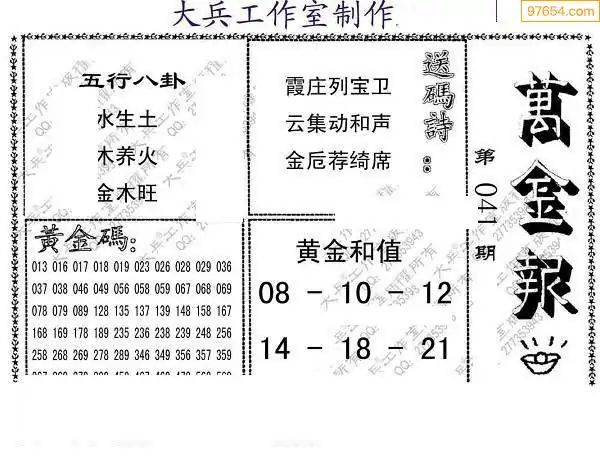 大兵工作室制作
97654.com
五行八卦
水生土
木养火
金木旺
霞庄列宝卫
云集动和声
金卮荐绮席
送碼詩：
萬金報
第041期
黄金碼：
013 016 017 018 019 023 026 028 029 036
037 038 046 049 056 057 058 067 068 069
078 079 089 128 135 137 139 148 158 167
168 169 178 189 235 238 239 248 256
258 268 269 278 289 346 347 356 357 359
黄金和值
08 - 10 - 12
14 - 18 - 21